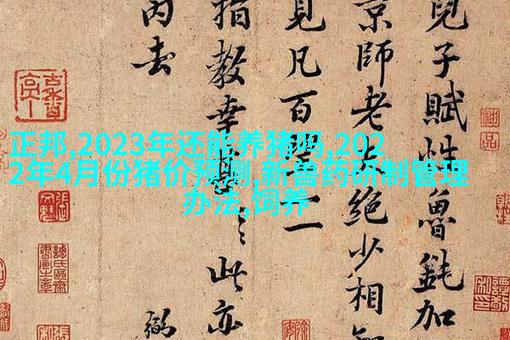 正邦,2023年还能养猪吗,202
2年4月份猪价预测,新兽药研制管理
办法,饲养
兒子賦性魯鈍加
京師老絕少相
見凡百一二
指教幸此亦
去